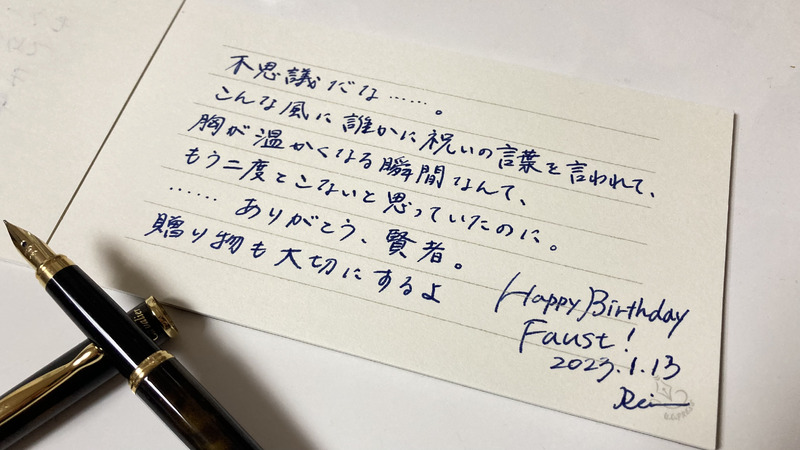 不思議だな……。
こんな風に誰かに祝いの言葉を言われて、
胸が温かくなる瞬間なんて、
もう二度とこないと思っていたのに。
…… ありがとう、賢者。
贈り物も大切にするよ
Happy Birthday
Faust!
2023.1.13